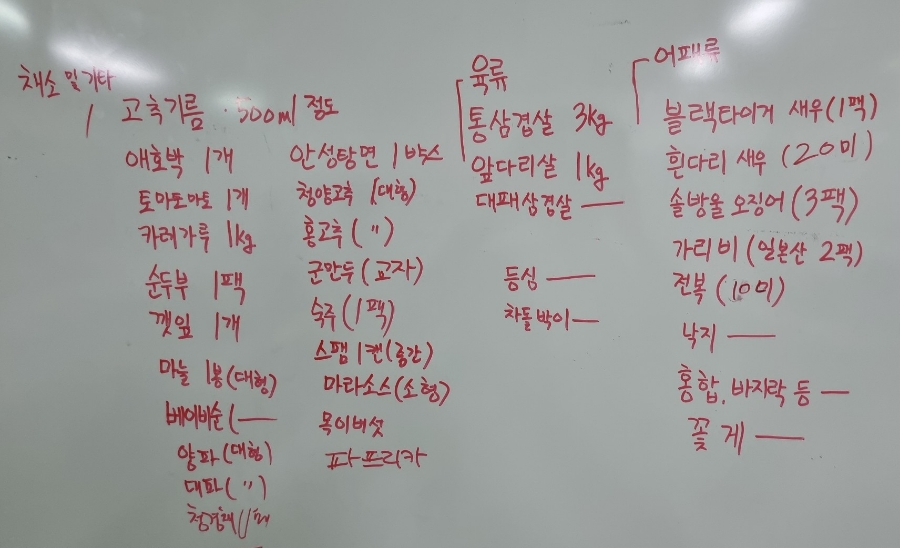 채소 및 기타
고추기름 · 500ml 정도
애호박 1개
토마토마토 1개
카레가루 1kg
순두부 1팩
깻잎 1개
마늘 1봉(대형)
베이비순(—
양파(대형)
대파( 〃 )
안성탕면 1박스
청양고추 (대형)
홍고추( 〃 )
군만두(교자)
숙주(1팩)
스팸 1캔(중간)
마라소스(소형)
목이버섯
파프리카
육류
통삼겹살 3kg
앞다리살 1kg
대패삼겹살 —
등심 —
차돌박이 —
어패류
블랙타이거 새우(1팩)
흰다리 새우 (20미)
솔방울 오징어(3팩)
가리비(일본산 2팩)
전복(10미)
낙지 —
홍합, 바지락 등 —
꽃게 —